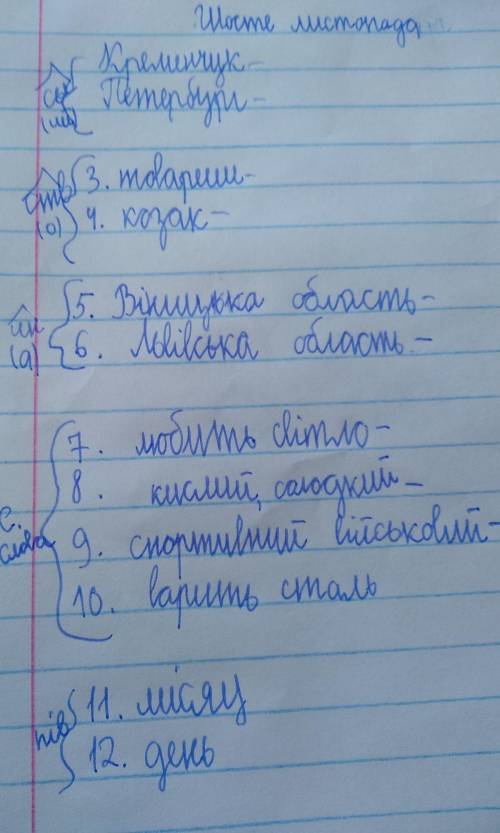 Шосте листопада
Кременчук-
Петербург-
ськ
ств
(о)
3. товариш-
4. козак-
ин
(а)
5. Вінницька область-
6. Львівська область-
С.
слова
7. любить світло-
8. кислий, солодкий-
9. спортивний військовий-
10. варить сталь
пів
11. місяц
12. день